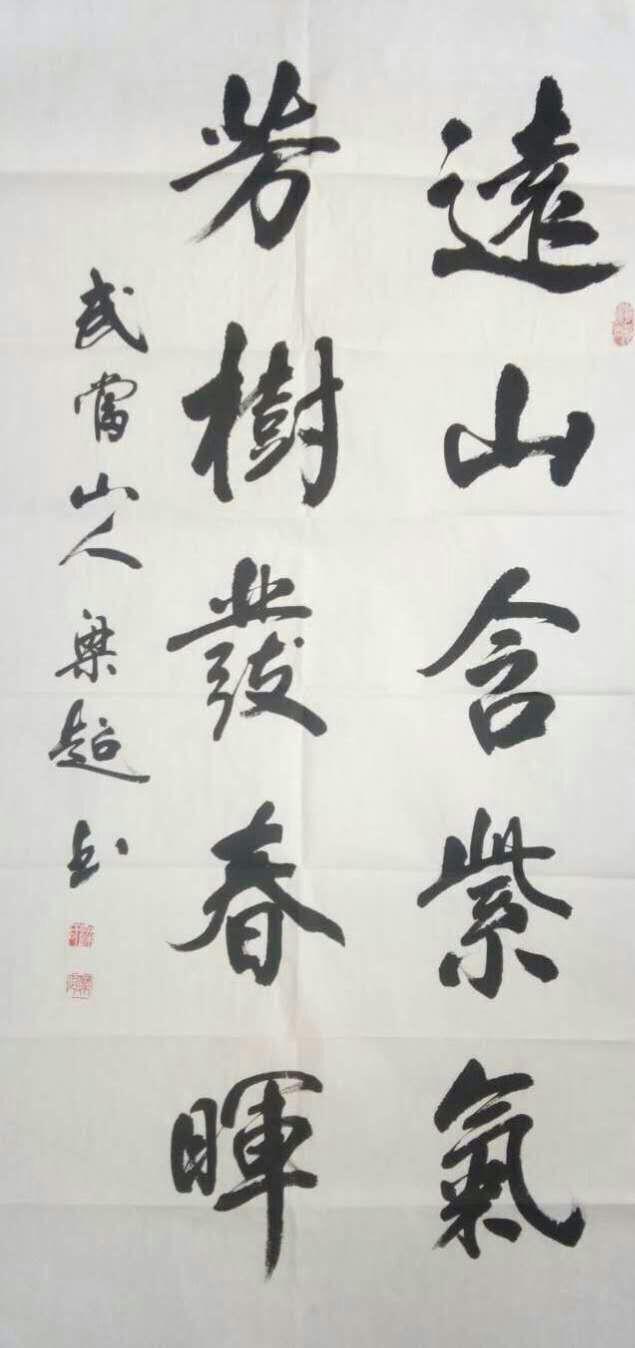 遠山含紫氣
芳樹發春暉
武當山人梁超書